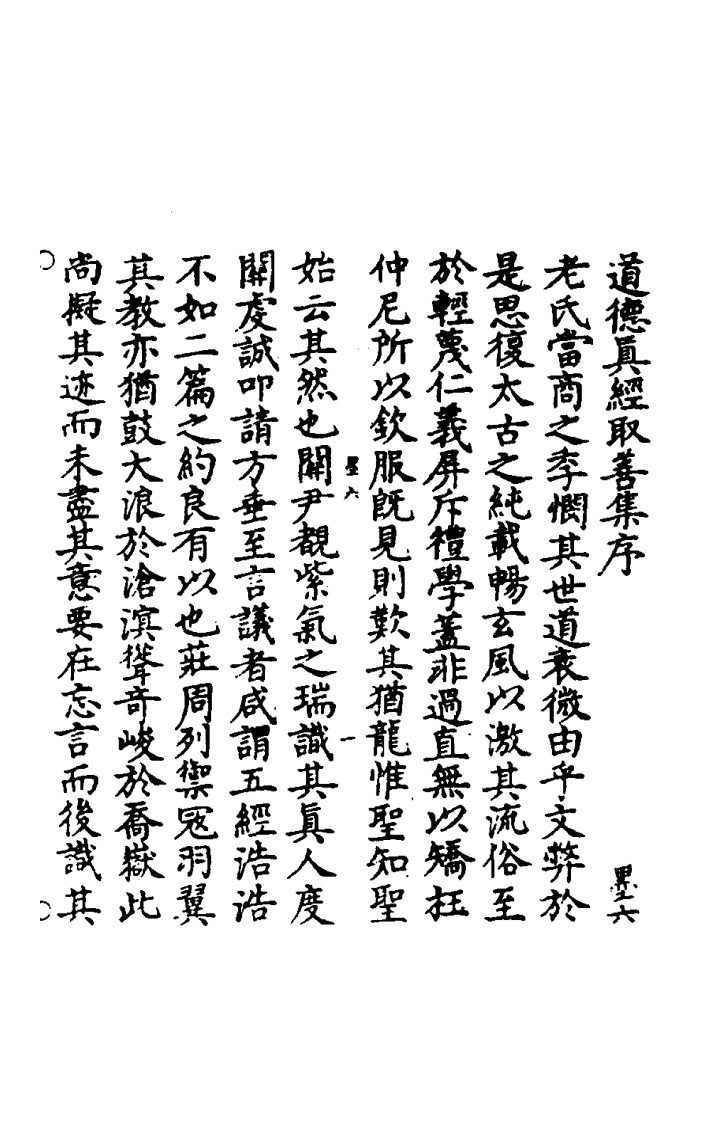 道德眞經取善集序
墨六
老氏當商之季憫其世道衰微由乎文弊於
是思復太古之純載暢玄風以激其流俗至
於輕蔑仁義屏斥禮學蓋非過直無以矯枉
仲尼所以欽服旣見則歎其猶龍惟聖知聖
墨六
一
始云其然也關尹覩紫氣之瑞識其眞人度
關虔誠叩請方垂至言議者咸謂五經浩浩
不如二篇之約良有以也莊周列禦寇羽翼
其教亦猶鼓大浪於滄溟聳奇峻於喬嶽此
尚擬其迹而未盡其意要在忘言而後識其